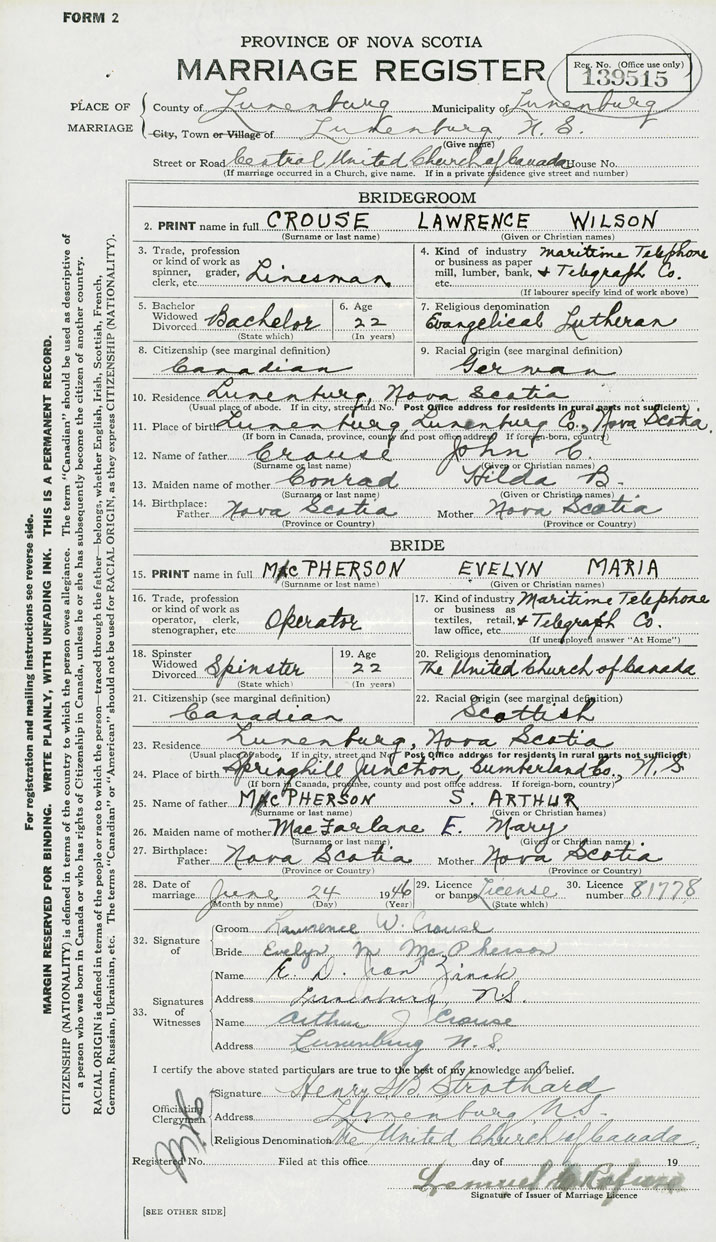 FORM 2
PROVINCE OF NOVA SCOTIA
MARRIAGE REGISTER
Reg. No. (Office use only)
139515
PLACE OF MARRIAGE
County of Lunenburg Municipality of Lunenburg
City, Town or Village of Lunenburg, N. S.
(Give name)
Street or Road Central United Church of Canada House No.
(If marriage occurred in a Church, give name. If in a private residence give street and number)
BRIDEGROOM
2. PRINT name in full CROUSE LAWRENCE WILSON
(Surname or last name) (Given or Christian names)
3. Trade, profession or kind of work as spinner, grader, clerk, etc. Linesman
4. Kind of industry or business as paper mill, lumber, bank, etc. Maritime Telephone & Telegraph Co.
(If labourer specify kind of work above)
5. Bachelor Widowed Divorced Bachelor
(State which)
6. Age 22
(In years)
7. Religious denomination
Evangelical Lutheran
8. Citizenship (see marginal definition)
Canadian
9. Racial Origin (see marginal definition)
German
10. Residence Lunenburg, Nova Scotia
(Usual place of abode. If in city, street and No. Post Office address for residents in rural parts not sufficient)
11. Place of birth Lunenburg, Lunenburg Co., Nova Scotia.
(If born in Canada, province, county and post office address. If foreign-born, country)
12. Name of father Crouse John C.
(Surname or last name) (Given or Christian names)
13. Maiden name of mother Conrad Hilda B.
(Surname or last name) (Given or Christian names)
14. Birthplace: Father Nova Scotia Mother Nova Scotia
(Province or Country) (Province or Country)
BRIDE
15. PRINT name in full MacPHERSON EVELYN MARIA
(Surname or last name) (Given or Christian names)
16. Trade, profession or kind of work as operator, clerk, stenographer, etc. Operator
17. Kind of industry or business as textiles, retail, law office, etc. Maritime Telephone & Telegraph Co.
(If unemployed answer "At Home")
18. Spinster Widowed Divorced Spinster
(State which)
19. Age 22
(In years)
20. Religious denomination
The United Church of Canada
21. Citizenship (see marginal definition)
Canadian
22. Racial Origin (see marginal definition)
Scottish
23. Residence Lunenburg, Nova Scotia
(Usual place of abode. If in city, street and No. Post Office address for residents in rural parts not sufficient)
24. Place of birth Springhill Junction, Cumberland Co., N. S.
(If born in Canada, province, county and post office address. If foreign-born, country)
25. Name of father MacPHERSON S. ARTHUR
(Surname or last name) (Given or Christian names)
26. Maiden name of mother MacFarlane E. Mary
(Surname or last name) (Given or Christian names)
27. Birthplace: Father Nova Scotia Mother Nova Scotia
(Province or Country) (Province or Country)
28. Date of marriage June 24 1946
(Month by name) (Day) (Year)
29. Licence or banns License
(State which)
30. Licence number 81778
32. Signature of
Groom Lawrence W. Crouse
Bride Evelyn M McPherson
33. Signatures of Witnesses
Name E. D. Zinck
Address Lunenburg NS.
Name Arthur J Crouse
Address Lunenburg N. S.
I certify the above stated particulars are true to the best of my knowledge and belief.
Officiating Clergyman
Signature Henry B Strothard
Address Lunenburg N.S.
Religious Denomination The United Church of Canada
Registered No. Filed at this office day of 19
Lemuel
Signature of Issuer of Marriage Licence
[SEE OTHER SIDE]
For registration and mailing instructions see reverse side.
MARGIN RESERVED FOR BINDING. WRITE PLAINLY, WITH UNFADING INK. THIS IS A PERMANENT RECORD.
CITIZENSHIP (NATIONALITY) is defined in terms of the country to which the person owes allegiance. The term "Canadian" should be used as descriptive of
a person who was born in Canada or who has rights of Citizenship in Canada, unless he or she has subsequently become the citizen of another country.
RACIAL ORIGIN is defined in terms of the people or race to which the person—traced through the father—belongs, whether English, Irish, Scottish, French,
German, Russian, Ukrainian, etc. The terms "Canadian" or "American" should not be used for RACIAL ORIGIN, as they express CITIZENSHIP (NATIONALITY).